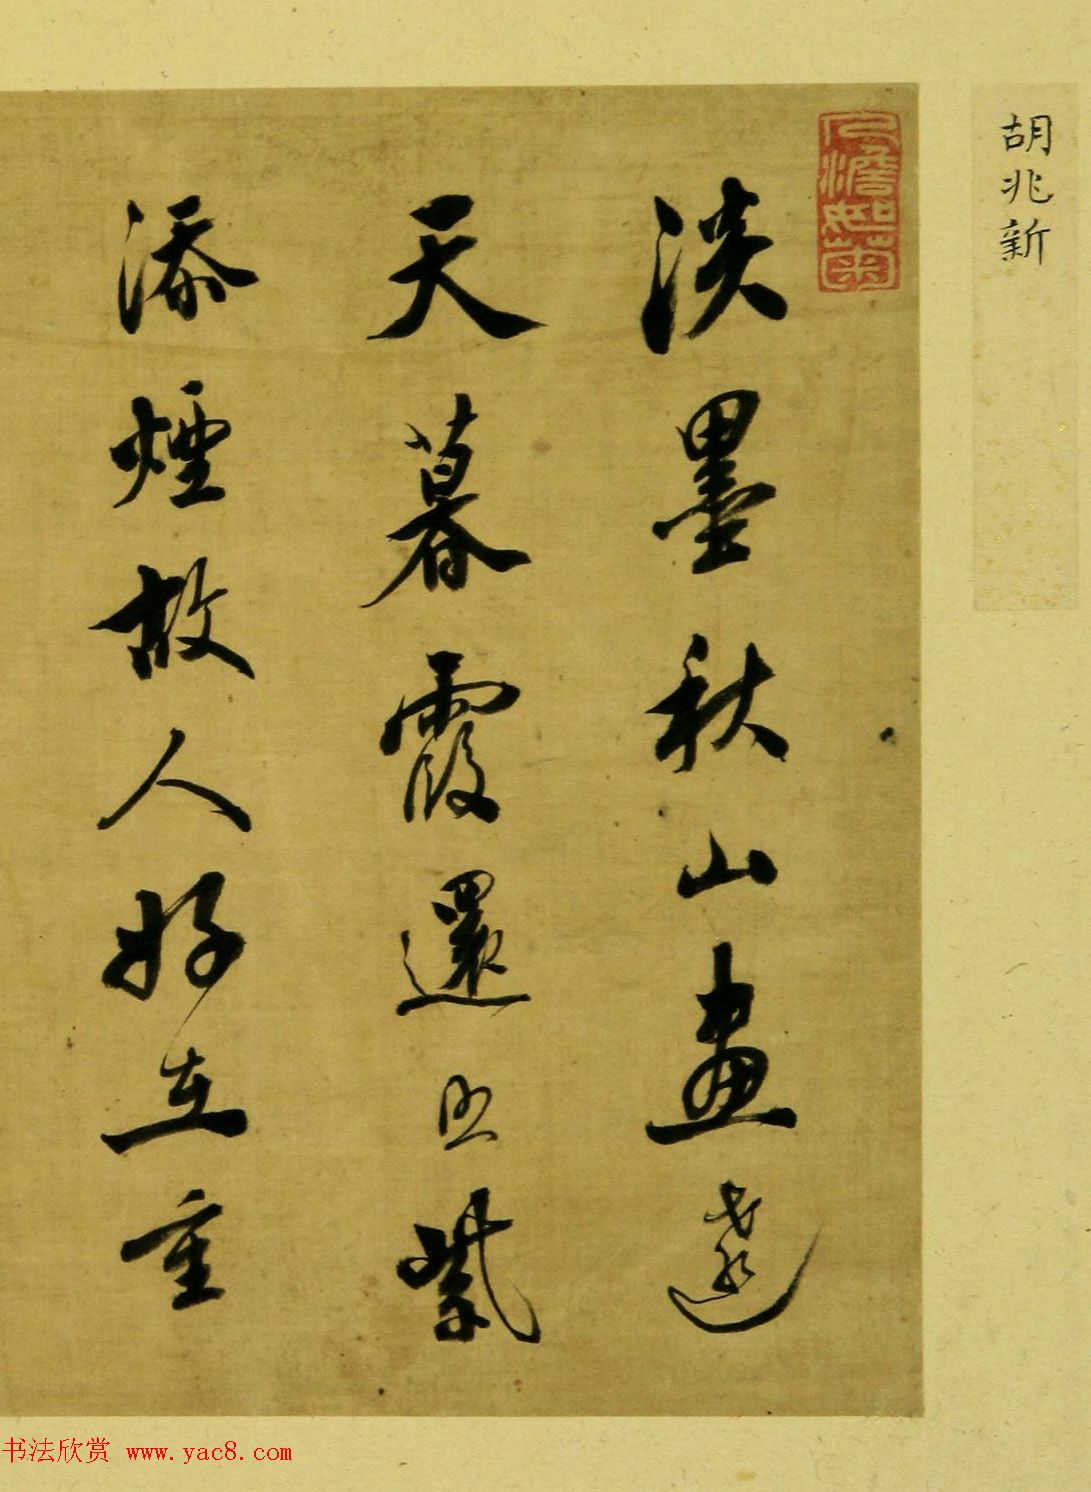 胡兆新
人澹如菊
淡墨秋山畫遠
天暮霞還照紫
添煙故人好在重
书法欣赏 www.yac8.com